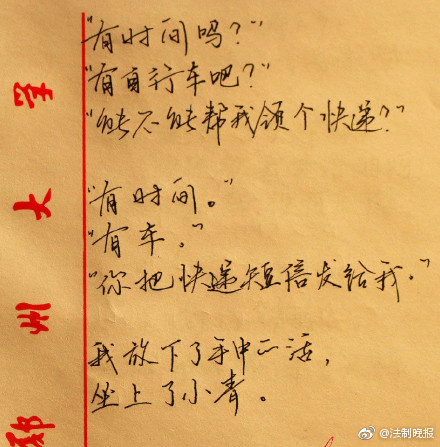 "有时间吗?"
"有自行车吧?"
"能不能帮我领个快递?"
"有时间。"
"有车。"
"你把快递短信发给我。"
我放下了手中的活,
坐上了小青。
郑州大学
@法制晚报